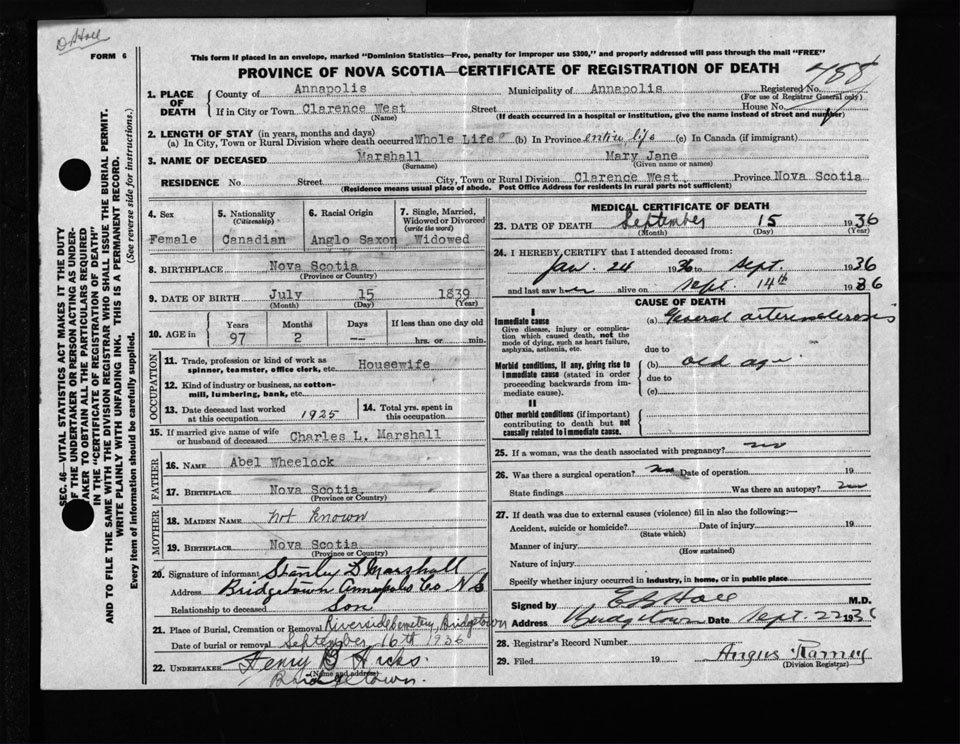 FORM 6
This form if placed in an envelope, marked "Dominion Statistics—Free, penalty for improper use $300," and properly addressed will pass through the mail "FREE"
PROVINCE OF NOVA SCOTIA—CERTIFICATE OF REGISTRATION OF DEATH
1. PLACE OF DEATH
County of Annapolis Municipality of Annapolis Registered No.
(For use of Registrar General only)
If in City or Town Clarence West Street House No.
(Name) (If death occurred in a hospital or institution, give the name instead of street and number)
2. LENGTH OF STAY (in years, months and days)
(a) In City, Town or Rural Division where death occurred Whole Life (b) In Province entire life (c) In Canada (if immigrant)
3. NAME OF DECEASED Marshall Mary Jane
(Surname) (Given name or names)
RESIDENCE No Street City, Town or Rural Division Clarence West Province Nova Scotia
(Residence means usual place of abode. Post Office Address for residents in rural parts not sufficient)
SEC. 46—VITAL STATISTICS ACT MAKES IT THE DUTY
OF THE UNDERTAKER OR PERSON ACTING AS UNDER-
TAKER TO OBTAIN ALL THE PARTICULARS REQUIRED
IN THE "CERTIFICATE OF REGISTRATION OF DEATH"
AND TO FILE THE SAME WITH THE DIVISION REGISTRAR WHO SHALL ISSUE THE BURIAL PERMIT.
WRITE PLAINLY WITH UNFADING INK. THIS IS A PERMANENT RECORD.
Every item of information should be carefully supplied. (See reverse side for instructions.)
4. Sex
Female
5. Nationality
(Citizenship)
Canadian
6. Racial Origin
Anglo Saxon
7. Single, Married,
Widowed or Divorced
(write the word)
Widowed
8. BIRTHPLACE Nova Scotia
(Province or Country)
9. DATE OF BIRTH July 15 1839
(Month) (Day) (Year)
10. AGE in
Years Months Days If less than one day old
97 2 -- hrs. or min.
OCCUPATION
11. Trade, profession or kind of work as
spinner, teamster, office clerk, etc. Housewife
12. Kind of industry or business, as cotton-
mill, lumbering, bank, etc.
13. Date deceased last worked
at this occupation 1925
14. Total yrs. spent in
this occupation
15. If married give name of wife
or husband of deceased Charles L. Marshall
FATHER
16. NAME Abel Wheelock
17. BIRTHPLACE Nova Scotia
(Province or Country)
MOTHER
18. MAIDEN NAME not known
19. BIRTHPLACE Nova Scotia
(Province or Country)
20. Signature of informant Stanley L Marshall
Address Bridgetown Annapolis Co N S
Relationship to deceased Son
21. Place of Burial, Cremation or Removal Riverside Cemetery, Bridgetown
Date of burial or removal September 16th 1936
22. UNDERTAKER Henry B Hicks.
(Name and address)
Bridgetown.
MEDICAL CERTIFICATE OF DEATH
23. DATE OF DEATH September 15 1936
(Month) (Day) (Year)
24. I HEREBY CERTIFY that I attended deceased from:
Jan. 24 1936 to Sept. 1936
and last saw her alive on Sept. 14th 1936
CAUSE OF DEATH
I
Immediate cause
Give disease, injury or complica-
tion which caused death, not the
mode of dying, such as heart failure,
asphyxia, asthenia, etc.
(a) General arteriosclerosis
due to
Morbid conditions, if any, giving rise to
immediate cause (stated in order
proceeding backwards from im-
mediate cause).
(b) old age
due to
(c)
II
Other morbid conditions (if important)
contributing to death but not
causally related to immediate cause.
25. If a woman, was the death associated with pregnancy? no
26. Was there a surgical operation? no Date of operation 19
State findings Was there an autopsy? no
27. If death was due to external causes (violence) fill in also the following:—
Accident, suicide or homicide? Date of injury 19
(State which)
Manner of injury
(How sustained)
Nature of injury
Specify whether injury occurred in industry, in home, or in public place
Signed by M.D.
Address Bridgetown Date Sept. 22 193
28. Registrar's Record Number
29. Filed 19 Angus Ramey
(Division Registrar)